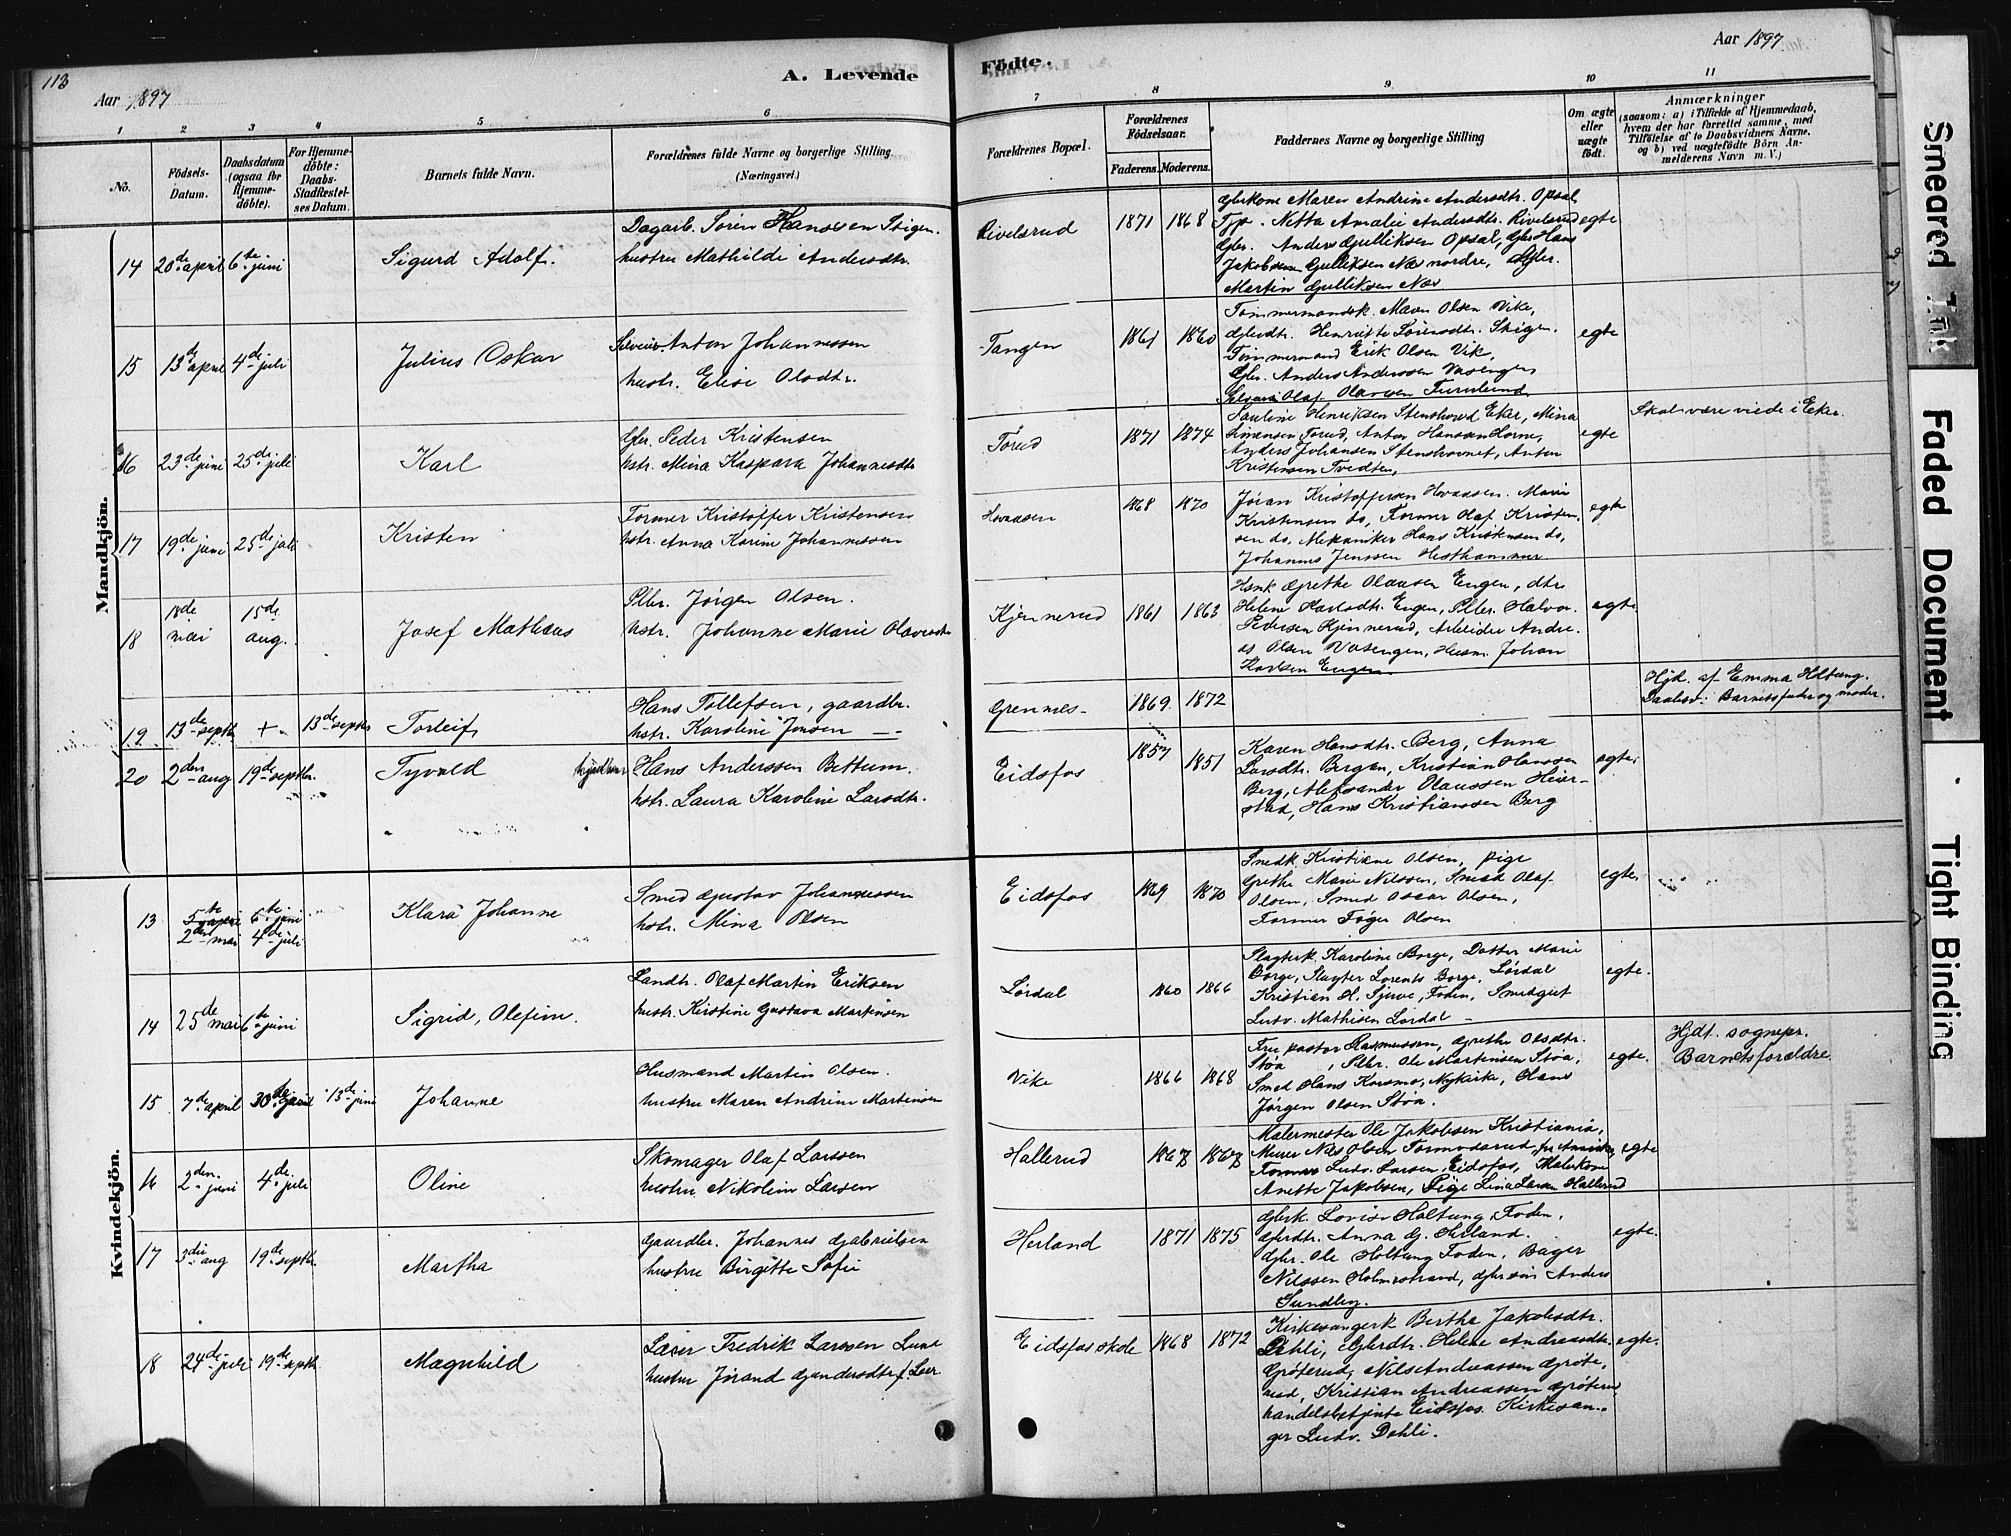 113
A. Levende
Födte.
Aar 1897
Aar 1897
1 2 3 4 5 6
7 8 9 10 11
No.
Födsels-Datum.
Daabsdatum (ogsaa for Hjemme-döbte).
For Hjemme-döbte: Daabs-Stadfæstel-ses Datum.
Barnets fulde Navn.
Forældrenes fulde Navne og borgerlige Stilling
(Næringsvei.)
Forældrenes Bopæl.
Forældrenes Födselsaar.
Faderens. Moderens.
Faddernes Navne og borgerlige Stilling
Om ægte eller uægte födt.
Anmærkninger
(saasom: a) i Tilfælde af Hjemmedaab, hvem der har forrettet samme, med Tilföielse af to Daabsvidners Navne. og b) ved uægtefödte Börn An-melderens Navn m. V.)
Mandkjön.
14 20de april 6te juni Sigurd Adolf.
Dagarb. Sören Hanssen Stigen.
hustru Mathilde Andersdtr.
Rivelsrud 1871 1868
Gbrkone Maren Andrine Andersdtr. Opsal
Tjp. Netta Amalie Andersdtr. Rivelsrud egte
Gbr. Anders Gulliksen Opsal, Gbr Hans
Jakobsen Gulliksen Næs nordre, Gbr.
Martin Gulliksen Næs
15 13de april 4de juli Julius Oskar
Anton Johannessen
hustr. Elise Olsdtr.
Tangen 1861 1860
Tömmermandsk. Maren Olsen Vike,
Gbrdtr. Henriette Sörensdtr. Stigen. egte
Tömmermand Erik Olsen Vik,
Gbr. Anders Anderssen Vasengen
Olaf Olavsen Furulund
16 23de juni 25de juli Karl
Gbr. Peder Kristensen
hstr. Mina Kaspara Johannesdtr
Torud 1871 1874
Pauline Henriksen Stenshoved Eker, Mina
Simensen Torud, Anton Hansen Horne, egte
Anders Johansen Stenshovnet, Anton
Kristensen Tvedten,
Skal være viede i Eker.
17 19de juni 25de juli Kristen
Former Kristoffer Kristensen
hstr. Anna Karine Johannessen
Hovaasen 1868 1870
Jöran Kristoffersen Hovaasen. Marie
Kristensen do, Former Olaf Kristen- egte
sen do, Mekaniker Hans Kristensen do,
Johannes Jenssen Hesthammer
18 18de mai 15de aug. Josef Mathæus
Pller. Jörgen Olsen.
hstr. Johanne Marie Olavesdtr
Kjennerud 1861 1863
Hansk Grethe Olausen Engen, dtr
Helene Karlsdtr. Engen, Pller. Halvor egte
Pedersen Kjennerud, Arbeider Andre-
as Olsen Vasengen, Husm. Johan
Karlsen Engen
19 13de septbr + 13de septbr Torleif
Hans Tollefsen, gaardbr.
hstr. Karoline Jensen
Grennes 1869 1872
Hjd. af Emma Holtung.
Daabsv: Barnets fader og moder.
20 2den aug 19de septbr. Tyvald
Hans Anderssen Bettum.
hstr. Laura Karoline Larsdtr.
Eidsfos 1857 1851
Karen Hansdtr. Berg, Anna
Larsdtr. Bergan, Kristian Hanssen egte.
Berg, Aleksander Olaussen Heier-
stad, Hans Kristianssen Berg
Kvindekjön.
13 5te april 6te juni
2den mai 4de juli Klara Johanne
Smed Gustav Johannessen
hstr. Mina Olsen
Eidsfos 1869 1870
Smedk. Kristiane Olsen, pige
Grethe Marie Nilssen, Smed Olaf egte.
Olsen, Smed Oscar Olsen,
Former Töger Olsen
14 25de mai 6te juni Sigrid, Olefine.
Landh. Olaf Martin Eriksen
hustr. Kirstine Gustava Martinsen
Lördal 1860 1866
Slagterk. Karoline Borge, Datter Marie
Borge, Slagter Lorents Borge, Lördal egte.
Kristian H. Sjuve, Foden, Smedgut
Ludv. Mathisen Lördal
15 7de april 30de juni 13de juni Johanne
Husmand Martin Olsen.
hustru Maren Andrine Martinsen
Vike 1866 1868
Fru pastor Rasmussen, Grethe Olsdtr.
Stöa, Pller. Ole Martinsen Stöa, egte.
Smed Hans Korsmo, Nykirke, Hans
Jörgen Olsen Stöa.
Hjdt. sognepr.
Barnets forældre.
16 2den juni 4de juli Oline
Skomager Olaf Larssen
hustru Nikoline Larsen
Hallerud 1867 1867
Malermester Ole Jakobsen Kristiania,
Murer Nils Olsen Tormodsrud, egte
Former Ludv. Larsen, Eidsfos, Malerkone
Anette Jakobsen, Pige Lina Larsen Hallerud
17 3die aug 19de septbr. Martha
Gaardbr. Johannes Gabrielsen
hustru Birgitte Sofie
Herland 1871 1875
Gbrk. Lovise Holtung, Foden,
Gbrdtr. Anna G. Herland. egte.
Gbr. Ole Holtung Foden, Bager
Nilssen Holmestrand, Gbrsön Anders
Sundby.
18 24de juli 19de septbr. Magnhild
Lærer Fredrik Larssen Lund
hustru Jörand Gundersdtr f. Leer
Eidsfos skole 1868 1872
Kirkesangerk Berthe Jakobsdtr.
Dehli, Gbrdtr. Helene Andreasdtr. egte.
Gröterud, Nils Andreassen Gröte-
rud, Kristian Andreassen Gröterud
handelsbetjente Eidsfos. Kirkesan-
ger Ludv. Dehli.
Smeared Ink
Faded Document
Tight Binding